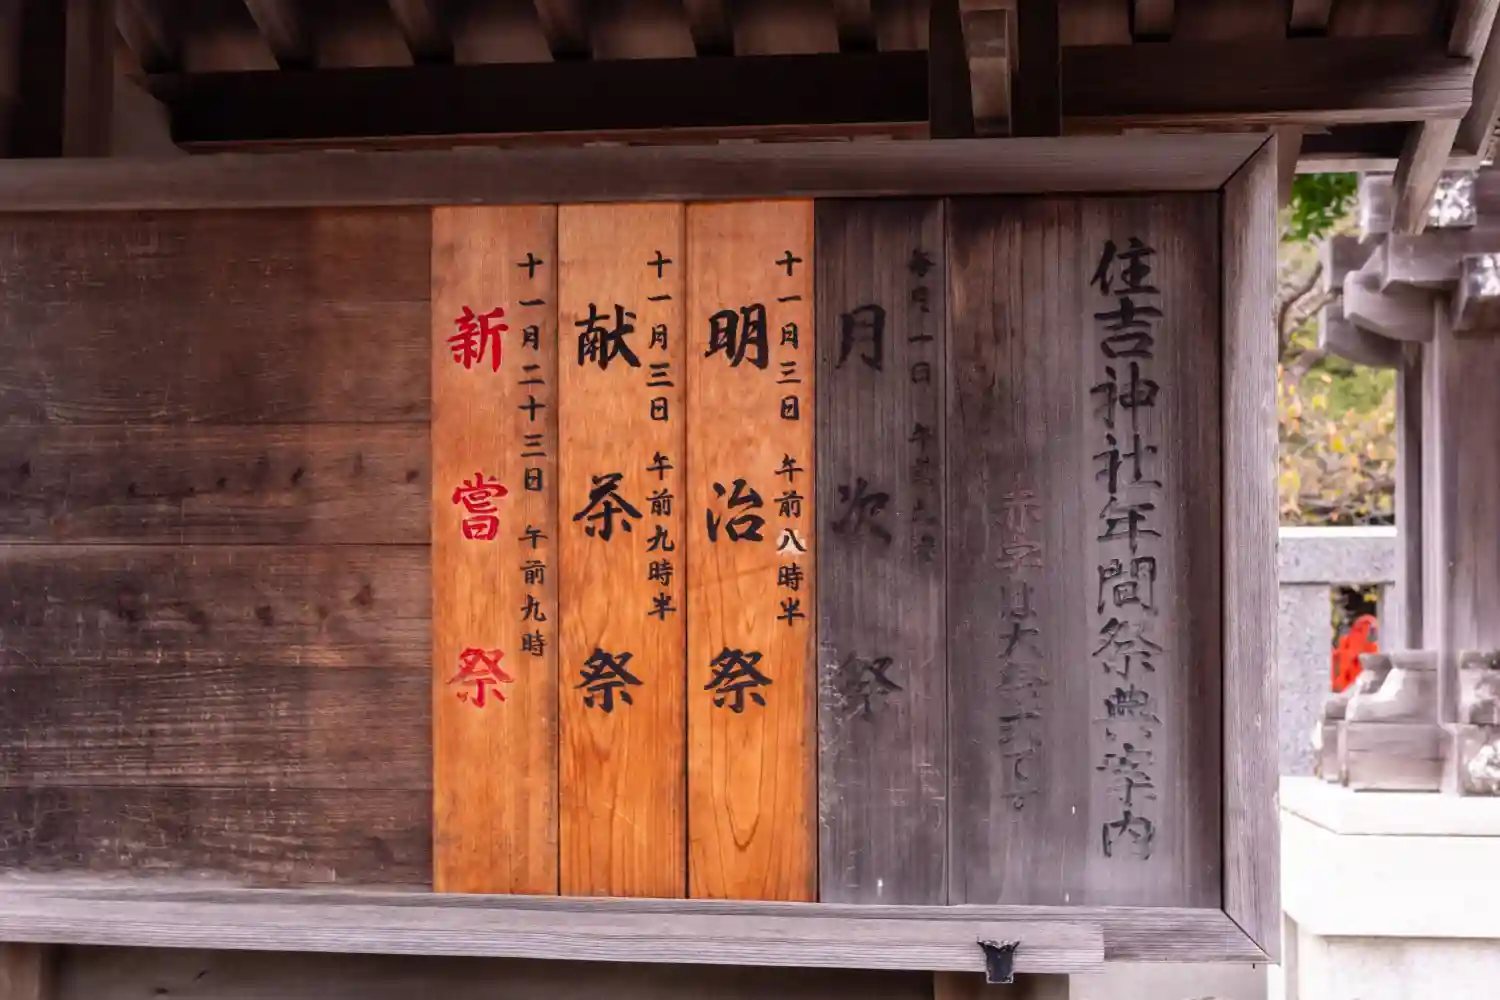 住吉神社年間祭典案内
赤字は大祭式です
毎月一日
月次祭
十一月三日 午前八時半
明治祭
十一月三日 午前九時半
献茶祭
十一月二十三日 午前九時
新嘗祭